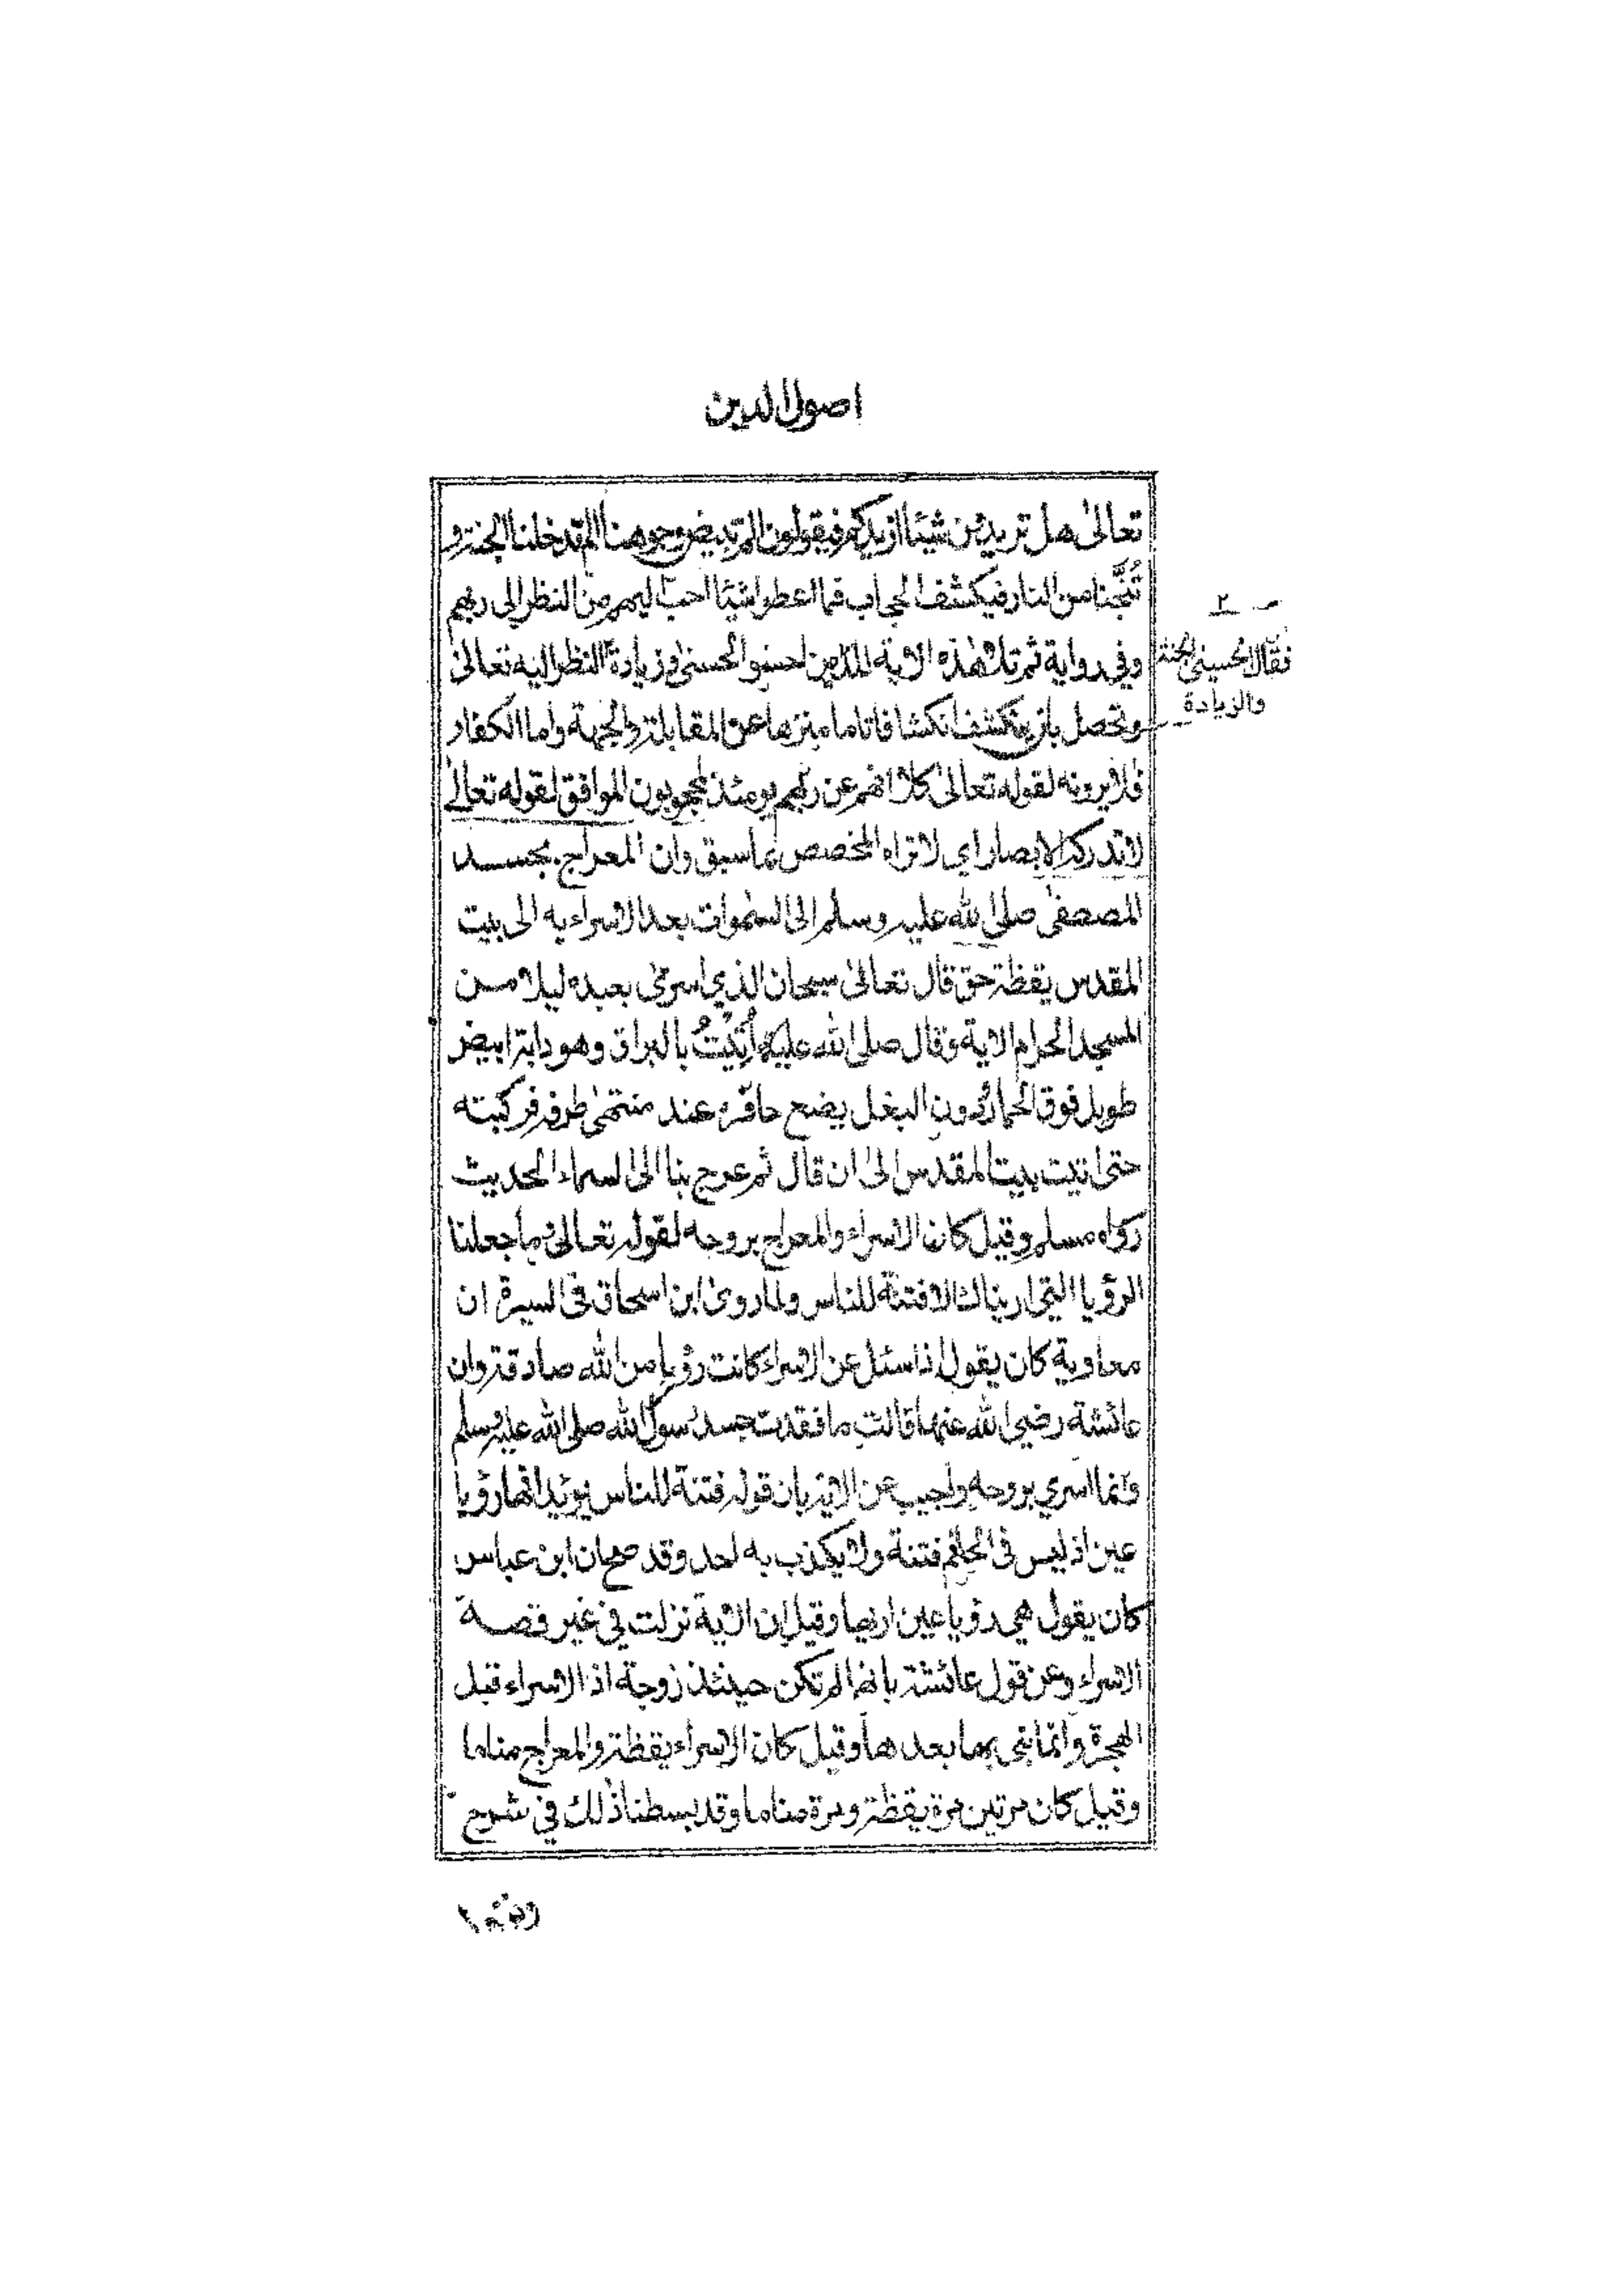 اصول الدين
تعالى هل تريدون شيئا ازيدكم فيقولون الم تبيض وجوهنا الم تدخلنا الجنة و
تُنَجِّنا من النار فيكشف الحجاب فما اعطوا شيئا احب اليهم من النظر الى ربهم
وفي رواية ثم تلا هذه الاية للذين احسنوا الحسنى وزيادة النظر اليه تعالى
٢
فقال الحسنى الجنة
والزيادة
وتحصل بان ينكشف انكشافا تاما منزها عن المقابلة والجهة واما الكفار
فلا يرونه لقوله تعالى كلا انهم عن ربهم يومئذ لمحجوبون الموافق لقوله تعالى
لا تدركه الابصار اي لا تراه المخصص بما سبق وان المعراج بجسد
المصطفى صلى الله عليه وسلم الى السموات بعد الاسراء به الى بيت
المقدس يقظة حق قال تعالى سبحان الذي اسرى بعبده ليلا من
المسجد الحرام الاية وقال صلى الله عليه اُتِيْتُ بالبراق وهو دابة ابيض
طويل فوق الحمار دون البغل يضع حافره عند منتهى طرفه فركبته
حتى اتيت بيت المقدس الى ان قال ثم عرج بنا الى السماء الحديث
رواه مسلم وقيل كان الاسراء والمعراج بروحه لقوله تعالى وما جعلنا
الرؤيا التي اريناك الا فتنة للناس ولما روى ابن اسحاق في السيرة ان
معاوية كان يقول اذا سئل عن الاسراء كانت رؤيا من الله صادقة وان
عائشة رضي الله عنها قالت ما فقدت جسد رسول الله صلى الله عليه وسلم
وانما اسري بروحه واجيب عن الاية بان قوله فتنة للناس يؤيد انها رؤيا
عين اذ ليس في الحلم فتنة ولا يكذب به احد وقد صح ان ابن عباس
كان يقول هي رؤيا عين اريها وقيل ان الاية نزلت في غير قصة
الاسراء وعن قول عائشة بانها لم تكن حينئذ زوجة اذ الاسراء قبل
الهجرة وانما بنى بها بعدها وقيل كان الاسراء يقظة والمعراج مناما
وقيل كان مرتين مرة يقظة ومرة مناما وقد بسطنا ذلك في شرح